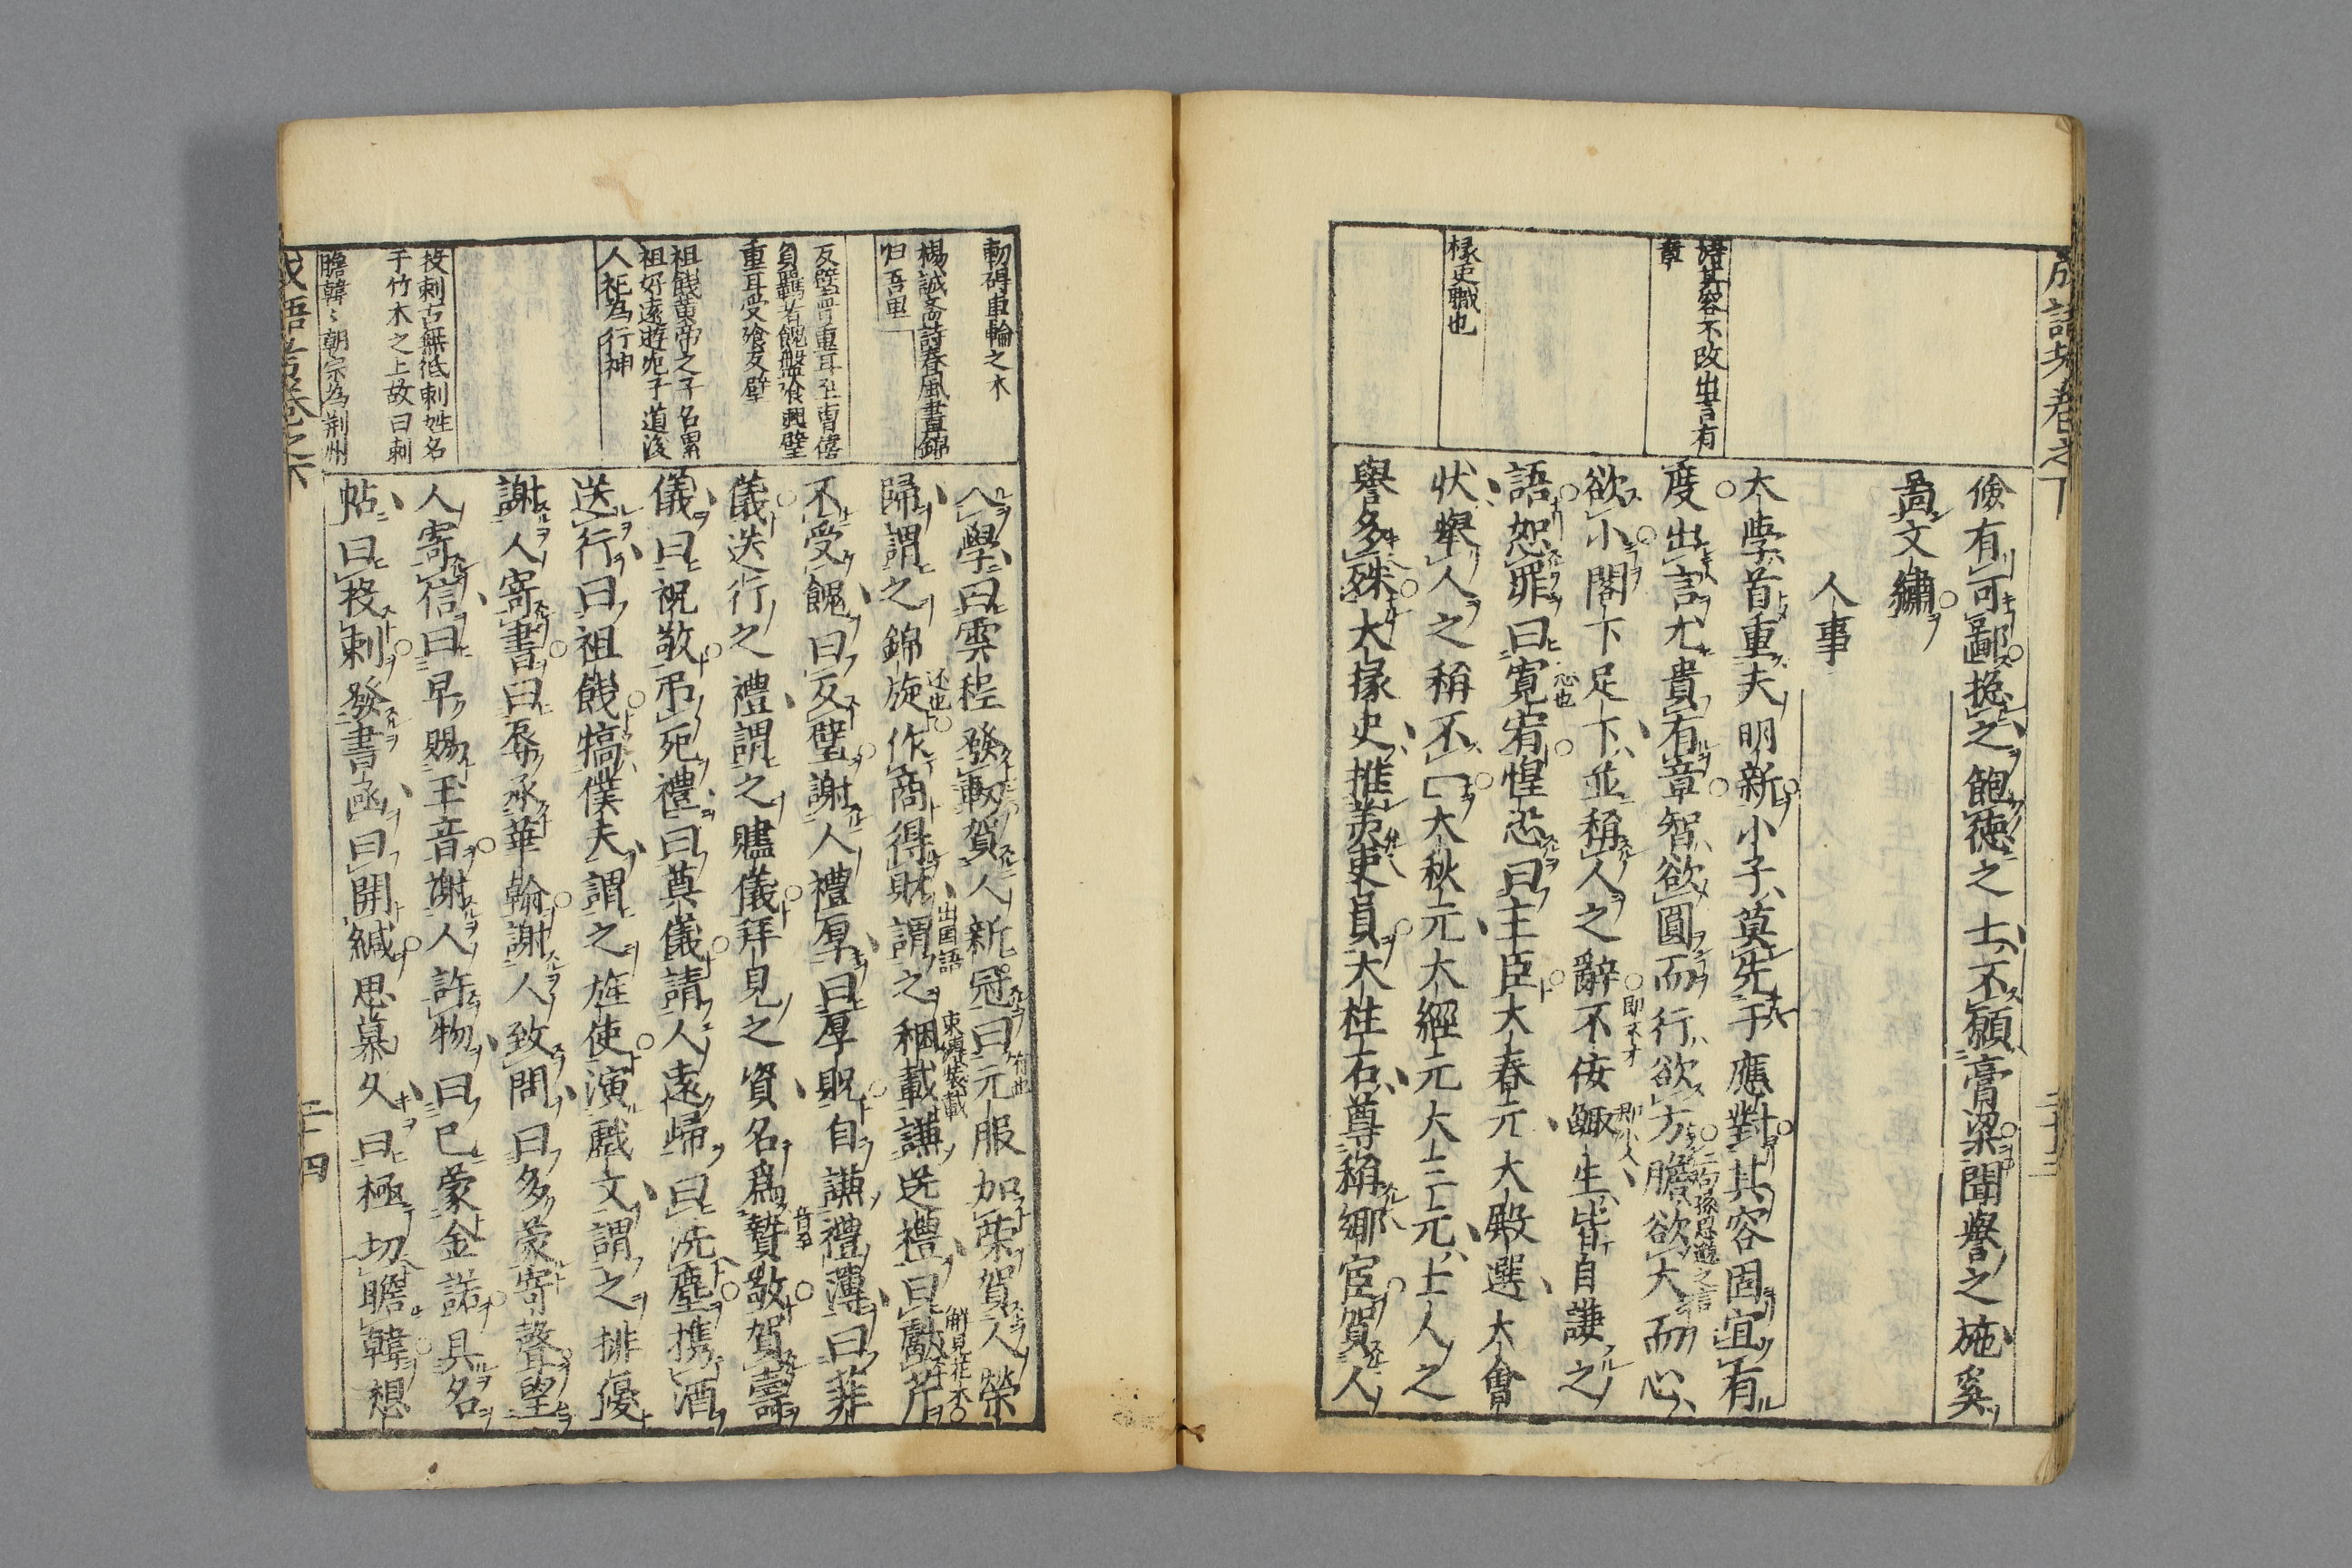 成語考卷之下
儉有可鄙揔之飽德之士不願膏粱聞譽之施奚
啚文繡
人事
大學首重夫明新小子莫先于應對其容固宜有
度出言尤貴有章智欲圓而行欲方膽欲大而心
欲小閣下足下並稱人之辭不佞鯫生皆自謙之
語恕罪曰寬宥惶恐曰主臣大春元大殿選大會
狀舉人之稱不一大秋元大經元大三元士人之
譽多殊大掾史推羙吏員大柱石尊稱鄉宦賀人
詩其容不改出言有
章
掾吏職也
即不才
即小人
二句孫思邈之言
二十三
入學曰雲程發軔賀人新冠曰元服加榮賀人榮
歸謂之錦旋作商得財謂之稇載謙送禮曰獻芹
不受餽曰反璧謝人禮厚曰厚貺自謙禮薄曰菲
儀送行之禮謂之贐儀拜見之資名爲贄敬賀壽
儀曰祝敬弔死禮曰奠儀請人遠歸曰洗塵携酒
送行曰祖餞犒僕夫謂之旌使演戲文謂之排優
謝人寄書曰辱承華翰謝人致問曰多蒙寄聲望
人寄信曰早賜玉音謝人許物曰已蒙金諾具名
帖曰投刺發書函曰開緘思慕久曰極切瞻韓想
軔碍車輪之木
楊誠斎詩春風晝錦
归吾里
反璧晋重耳至曹僖
負羈者餽盤飧興璧
重耳受飧反璧
祖餞黄帝之子名累
祖好遠遊死于道後
人祀為行神
投刺古無紙刺姓名
于竹木之上故曰刺
瞻韓〻朝宗為荆州
还也
出国語
解見花木
成語考卷之下
二十四